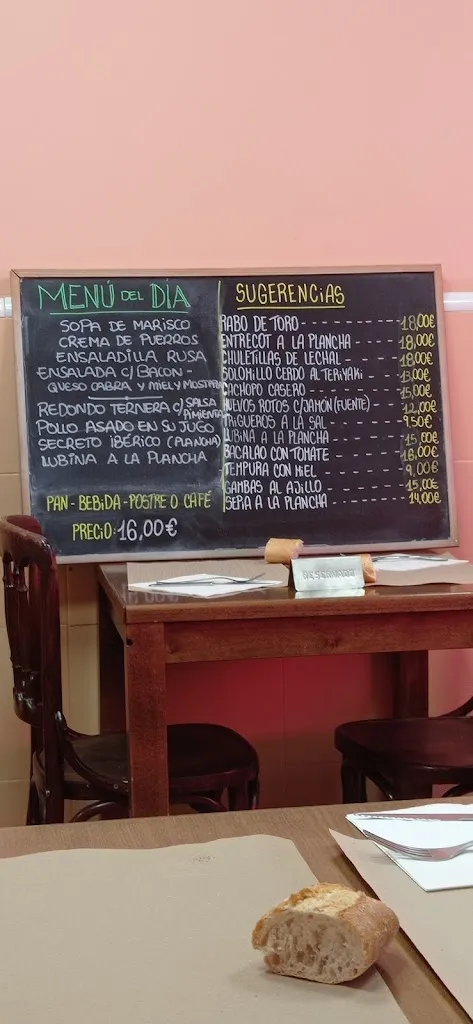 MENÚ DEL DÍA
SOPA DE MARISCO
CREMA DE PUERROS
ENSALADILLA RUSA
ENSALADA C/ BACON -
QUESO CABRA Y MIEL Y MOSTAZA
REDONDO TERNERA C/ SALSA PIMIENTA
POLLO ASADO EN SU JUGO
SECRETO IBÉRICO (PLANCHA)
LUBINA A LA PLANCHA
PAN - BEBIDA - POSTRE O CAFÉ
PRECIO: 16,00€
SUGERENCIAS
RABO DE TORO - 18,00€
ENTRECOT A LA PLANCHA - 18,00€
CHULETILLAS DE LECHAL - 18,00€
SOLOMILLO CERDO AL TERIYAKI - 13,00€
CACHOPO CASERO - 15,00€
HUEVOS ROTOS C/JAMÓN (FUENTE) - 12,00€
TRIGUEROS A LA SAL - 9,50€
LUBINA A LA PLANCHA - 15,00€
BACALAO CON TOMATE - 16,00€
TEMPURA CON MIEL - 9,00€
GAMBAS AL AJILLO - 15,00€
SEPIA A LA PLANCHA - 14,00€
RESERVADO